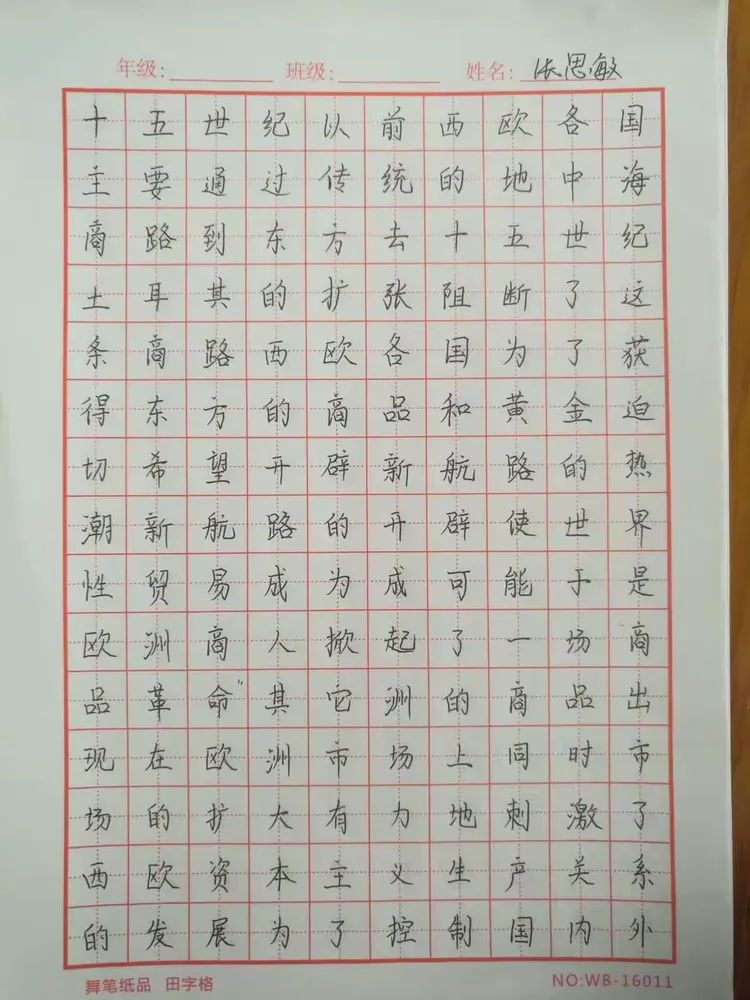 年级: 班级: 姓名: 张思敏
十五世纪以前西欧各国
主要通过传统的地中海
商路到东方去十五世纪
土耳其的扩张阻断了这
条商路西欧各国为了获
得东方的商品和黄金迫
切希望开辟新航路的热
潮新航路的开辟使世界
性贸易成为成可能于是
欧洲商人掀起了一场商
品革命"其它洲的商品出
现在欧洲市场上同时市
场的扩大有力地刺激了
西欧资本主义生产关系
的发展为了控制国内外
舞笔纸品 田字格 NO:WB-16011